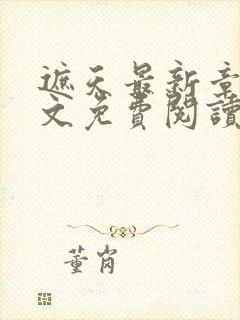 遮天最新章
文免費閱讀
董肖